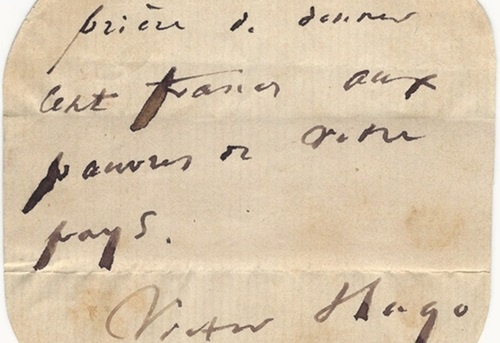 prière de donner
cent francs aux
pauvres de votre
pays.
Victor Hugo